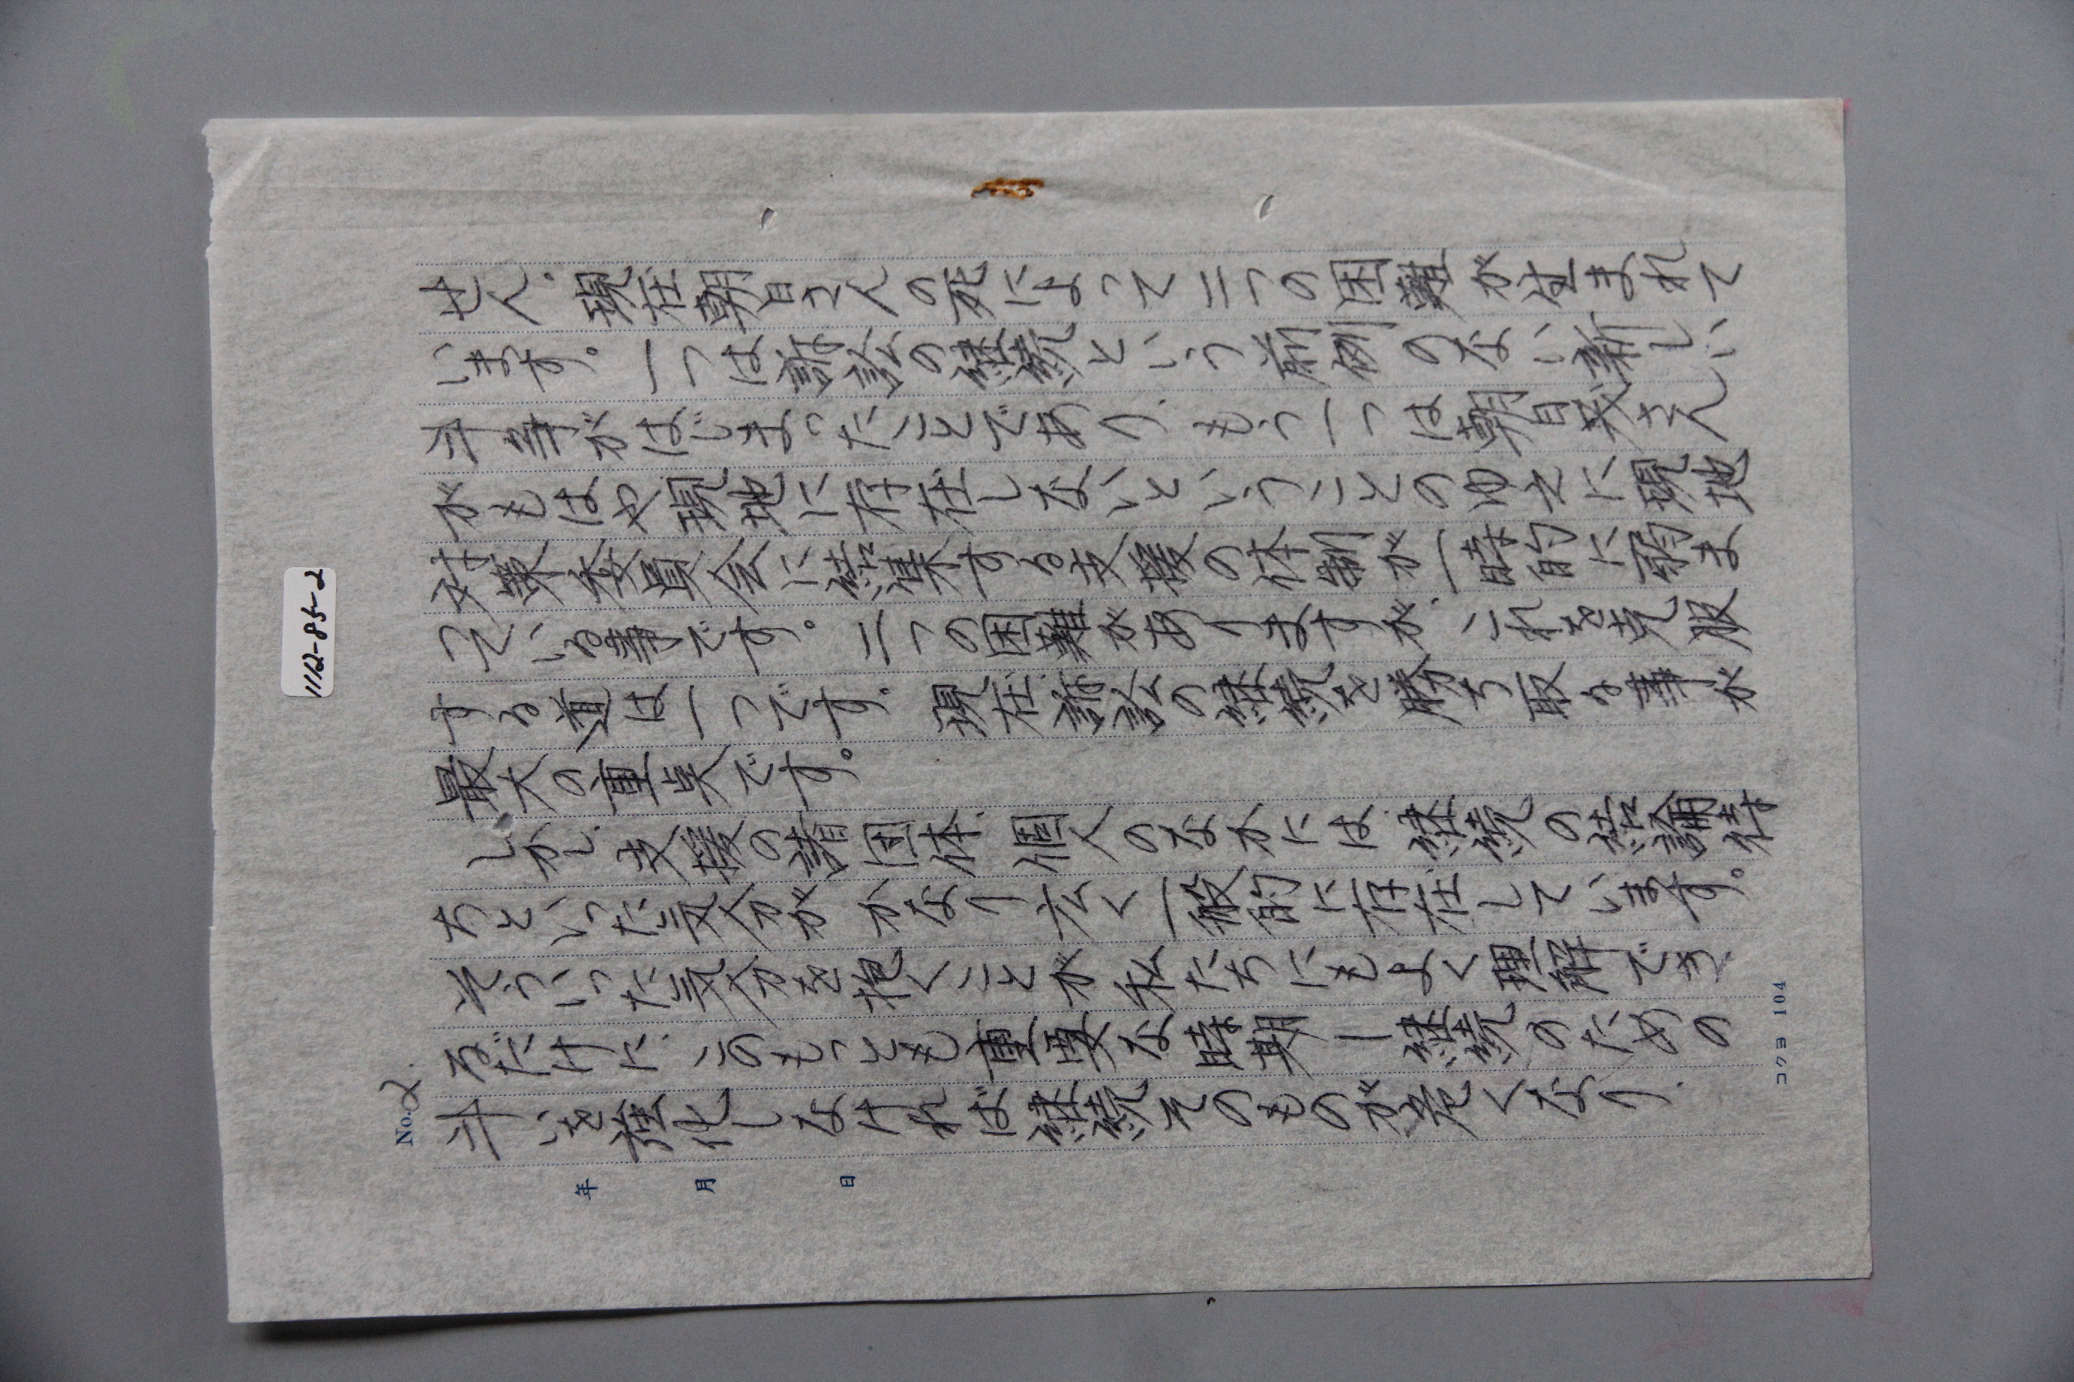 せん。現在朝日さんの死によって二つの困難が生まれて
います。一つは訴訟の継続という前例のない新しい
斗争がはじまったことであり、もう一つは朝日茂さん
がもはや現地に存在しないということのゆえに現地
対策委員会に結集する支援の体制が一時的に弱ま
っている事です。二つの困難がありますが、これを克服
する道は一つです。現在訴訟の継続を勝ち取る事が
最大の重点です。
しかし、支援の諸団体、個人のなかには、継続の結論待
ちといった気分が かなり広く一般的に存在しています。
そういった気分を抱くことが私たちにもよく理解でき
るだけに、このもっとも重要な時期ー継続のための
斗いを強化しなければ継続そのものが危くなり、
No. 2.
年 月 日
コクヨ 104
1162-85-2